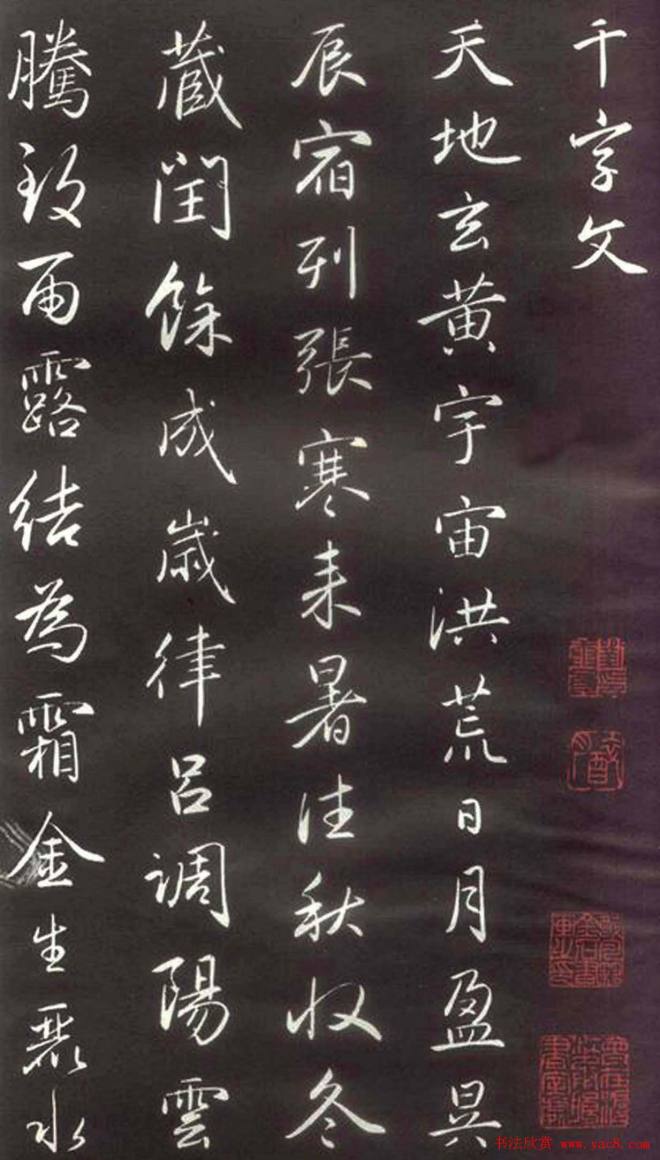 千字文
天地玄黄宇宙洪荒日月盈昃
辰宿列張寒来暑往秋收冬
藏閏餘成歲律呂調陽雲
騰致雨露結為霜金生麗水
书法欣赏 www.yac8.com